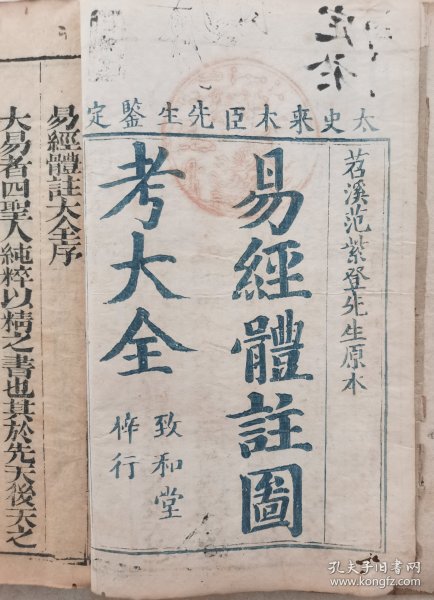 太史来木臣先生鑒定
苕溪范紫登先生原本
易經體註圖
考大全
致和堂
梓行
易經體註大全序
大易者四聖人純粹以精之書也其於先天後天之
孔夫子旧书网
www.kongfz.com